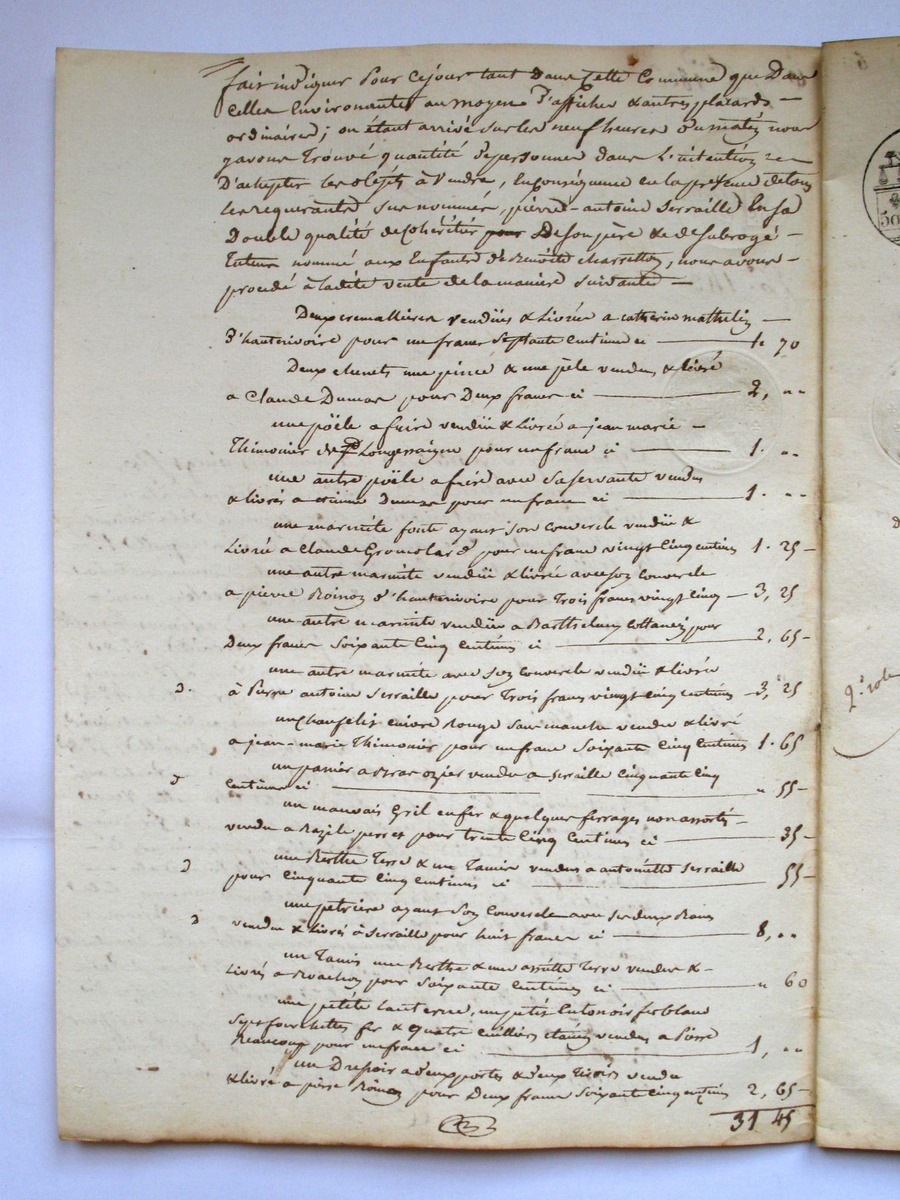 fair indiquer pour cejour tant dans cette Commune que Dans
celles Environantes au moyens D'affiches & autres placards —
ordinaires; on étant arrivé sur les neuf heures du matin nous
y avons Trouvé quantité depersonnes dans L'intention
D'achepter les objéts à Vendre, En conséquence en la présence de tous
les requerants sus nommés, pierre-antoine Serraille En sa
Double qualité de Cohéritier de son père & de Subrogé —
Tuteur nommé aux Enfants de Benoite charretton, nous avons —
procédé à ladite vente de la maniere suivante —
Deux cremallieres vendües & Livrée a catherine mathelin —
D'hauterivoire pour un franc Septante Centimes ci — 1. 70
Deux chenets une pince & une péle vendus & livré
a Claude Dumas pour Deux francs ci — 2, ..
une poële a fuire vendüe & Livré a jean marie —
Thimonier de Longessaigne pour un franc ci — 1. ..
une autre poële a fuire avec sa servante vendus
& livrés a etienne Dumas pour un franc ci — 1. ..
une marmite fonte ayant son couvercle vendüe &
Livrée a Claude Gromolard pour un franc vingt Cinq centimes 1. 25 —
une autre marmite vendüe & livrée avec son Couvercle
a pierre Roinon d'hauterivoire pour Trois francs vingt Cinq — 3, 25
une autre marmite vendüe a Barthelemy pour
Deux francs Soixante Cinq Centimes ci — 2, 65 —
une autre marmite avec son Couvercle vendüe & livrée
D. à Pierre antoine Serraille pour Trois francs vingt Cinq Centimes — 3, 25
un Chaufelit cuivre Rouge sans manche vendu & livré
a jean-marie Thimonier pour un franc Soixante Cinq Centimes 1. 65
un panier a Bras ozier vendu a Serraille Cinquante Cinq
D Centimes ci — " 55 —
un mauvais Gril en fer & quelques ferrages non assortis —
vendu a Bazile perret pour trente Cinq Centimes ci — 35 —
une Berthe Terre & une Tamis vendus a antoinette Serraille
D pour Cinquante Cinq Centimes ci — 55 —
une petriere ayant son Couvercle avec ses deux Bancs
D vendus & Livrés à Serraille pour huit francs ci — 8, ..
un Tamis une Berthe & une assiette Terre vendus & —
Livrés a pour Soixante Centimes ci — " 60
une petite Lanterne, un petit Entonoir ferblanc
Sept fourchettes fer & quatre cuilliers etaing vendus a Pierre
Beaucoup pour un franc ci — 1, ..
un Dressoir a deux portes & deux tiroirs vendu
& livré a pierre Roinon pour Deux francs Soixante Cinq centimes 2, 65 —
31 45
2e role
50